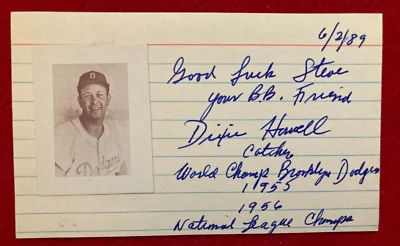 6/2/89
Good Luck Steve
Your B.B. Friend
Dixie Howell
Catcher
World Champs Brooklyn Dodgers
1955
1956
National League Champs
B
Dodgers